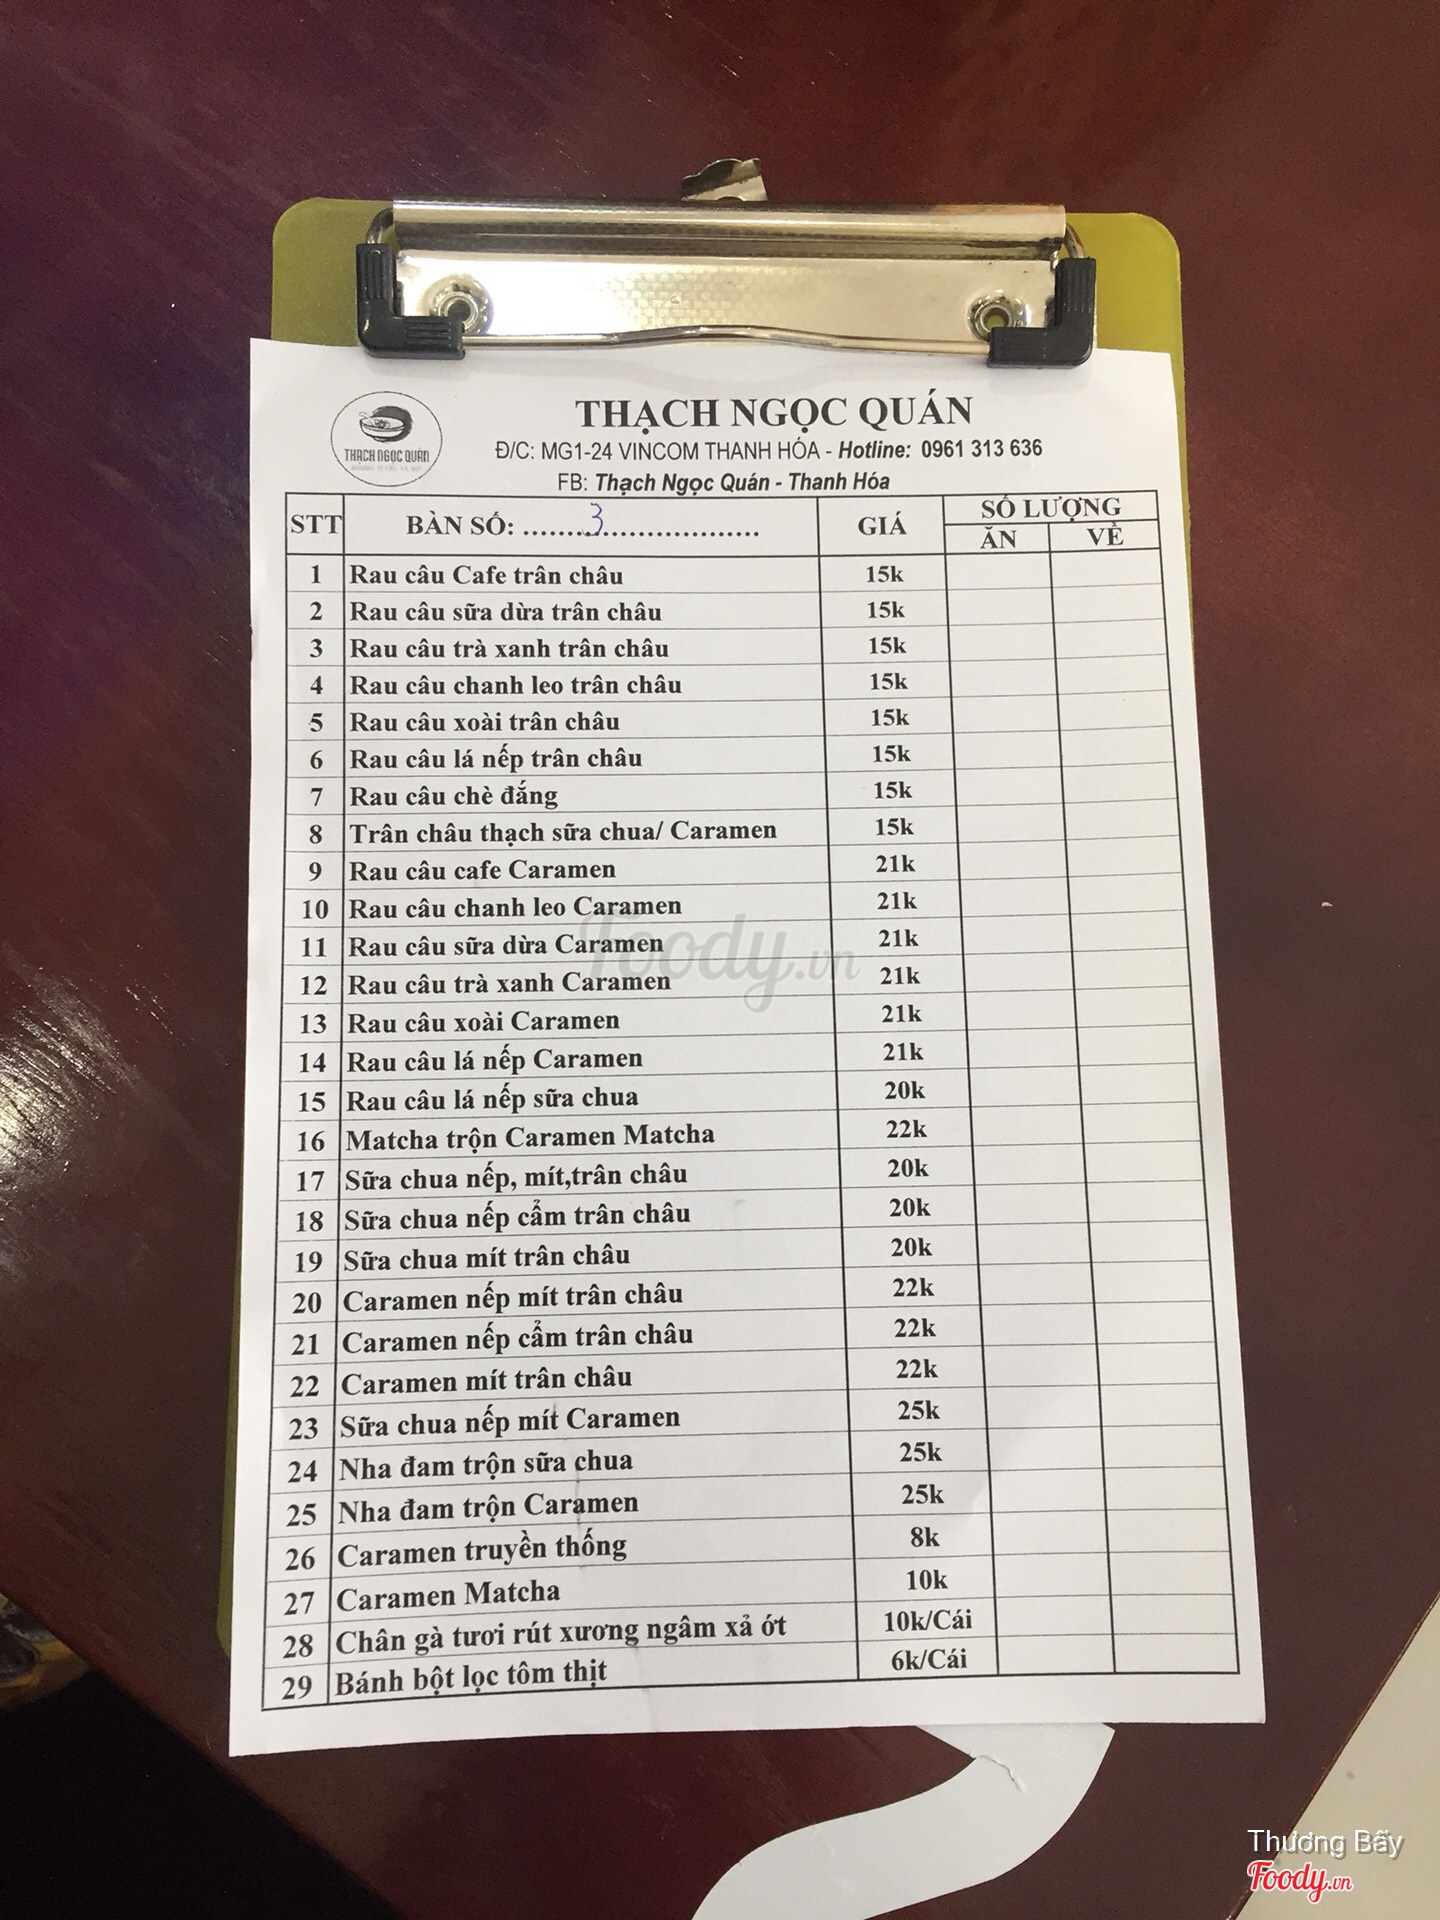 THẠCH NGỌC QUÁN
THẠCH NGỌC QUÁN
Đ/C: MG1-24 VINCOM THANH HÓA - Hotline: 0961 313 636
FB: Thạch Ngọc Quán - Thanh Hóa
STT BÀN SỐ: .......3...................... GIÁ SỐ LƯỢNG
ĂN VỀ
1 Rau câu Cafe trân châu 15k
2 Rau câu sữa dừa trân châu 15k
3 Rau câu trà xanh trân châu 15k
4 Rau câu chanh leo trân châu 15k
5 Rau câu xoài trân châu 15k
6 Rau câu lá nếp trân châu 15k
7 Rau câu chè đắng 15k
8 Trân châu thạch sữa chua/ Caramen 15k
9 Rau câu cafe Caramen 21k
10 Rau câu chanh leo Caramen 21k
11 Rau câu sữa dừa Caramen 21k
12 Rau câu trà xanh Caramen 21k
13 Rau câu xoài Caramen 21k
14 Rau câu lá nếp Caramen 21k
15 Rau câu lá nếp sữa chua 20k
16 Matcha trộn Caramen Matcha 22k
17 Sữa chua nếp, mít,trân châu 20k
18 Sữa chua nếp cẩm trân châu 20k
19 Sữa chua mít trân châu 20k
20 Caramen nếp mít trân châu 22k
21 Caramen nếp cẩm trân châu 22k
22 Caramen mít trân châu 22k
23 Sữa chua nếp mít Caramen 25k
24 Nha đam trộn sữa chua 25k
25 Nha đam trộn Caramen 25k
26 Caramen truyền thống 8k
27 Caramen Matcha 10k
28 Chân gà tươi rút xương ngâm xả ớt 10k/Cái
29 Bánh bột lọc tôm thịt 6k/Cái
Foody.vn
Thương Bấy
Foody.vn